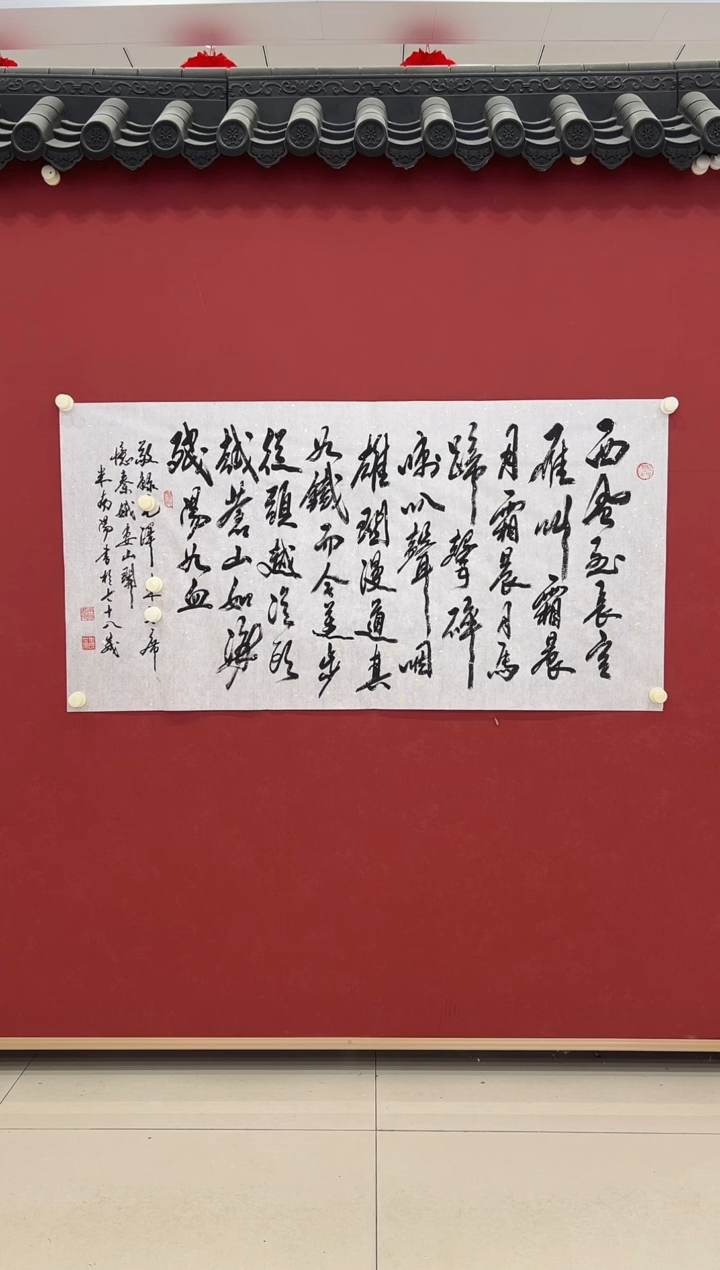 西風烈長空
雁叫霜晨
月霜晨月馬
蹄聲碎
喇叭聲咽
雄關漫道真
如鐵而今邁步
從頭越從頭
越蒼山如海
殘陽如血
敬録毛澤主席
憶秦娥婁山關
米南陽書於七十八歲